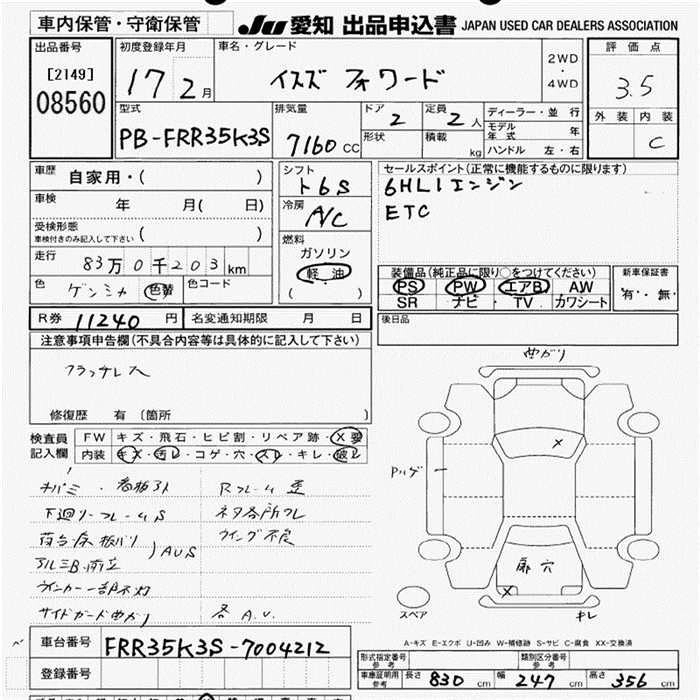 車内保管・守衛保管
JU 愛知 出品申込書 JAPAN USED CAR DEALERS ASSOCIATION
出品番号
[2149]
08560
初度登録年月
17 2月
車名・グレード
イスズ フォワード
2WD
・
4WD
評価点
3.5
外装 内装
C
型式
PB-FRR35K3S
排気量
7160 CC
ドア
2
形状
定員
2人
積載
kg
ディーラー・並行
モデル年式 年
ハンドル 左・右
車歴 自家用・( )
車検 年 月( 日)
受検形態
車検付きのみ記入して下さい ( )
走行
83万0千203km
色 ゲンシャ 色替
色コード
シフト
ト6S
冷房
A/C
燃料
ガソリン
軽油
( )
セールスポイント(正常に機能するものに限ります)
6HL1エンジン
ETC
装備品(純正品に限り○をつけてください)
PS PW エアB AW
SR ナビ TV カワシート
新車保証書
有・無
R券 11240 円
名変通知期限 月 日
後日品
注意事項申告欄(不具合内容等は具体的に記入して下さい)
フラッチレス
修復歴 有 (箇所 )
検査員記入欄
FW キズ・飛石・ヒビ割・リペア跡・X要
内装 キズ・汚レ・コゲ・穴・スレ・キレ・破レ
下廻リ-フレームS
AUS
ウインカー一部不灯
サイドガード曲ガリ
ウイング不良
各A.U.
曲ガリ
X
扉穴
X
キレ
スペア
A-キズ E-エクボ U-凹み W-補修跡 S-サビ C-腐食 XX-交換済
車台番号 FRR35K3S-7004212
登録番号
形式指定番号 参考
類別区分番号 参考
車庫証明用 参考 長さ 830 cm 幅 247 cm 高さ 356 cm